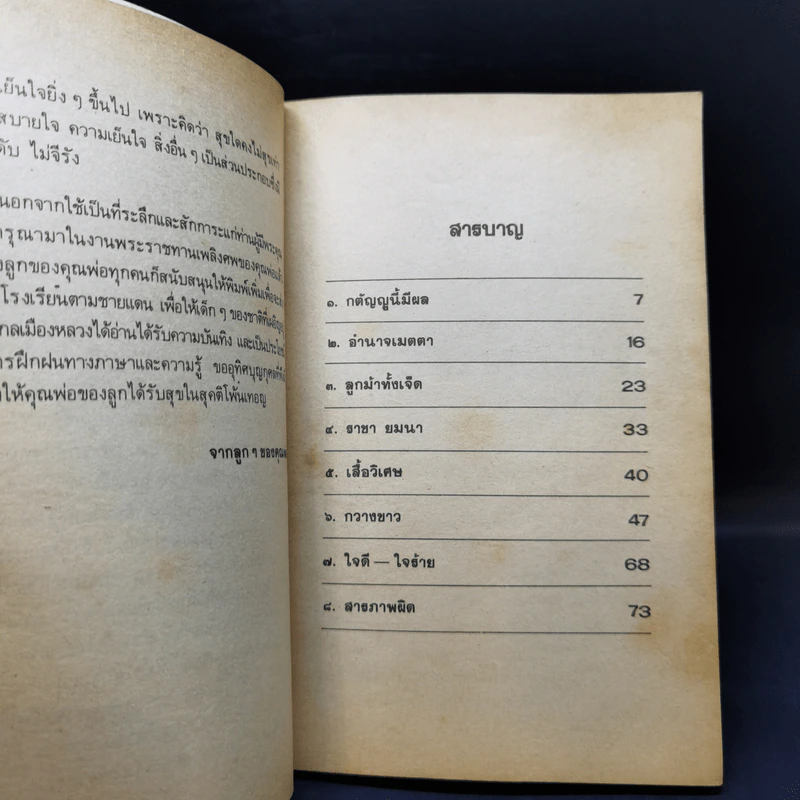 เย็นใจยิ่ง ๆ ขึ้นไป เพราะคิดว่า สุขใดคงไม่สุขเท่า
สบายใจ ความเย็นใจ สิ่งอื่น ๆ เป็นส่วนประกอบซึ่งมี
ดับ ไม่จีรัง
นอกจากใช้เป็นที่ระลึกและสักการะแก่ท่านผู้มีพระคุณ
กรุณามาในงานพระราชทานเพลิงศพของคุณพ่อแล้ว
ลูกของคุณพ่อทุกคนก็สนับสนุนให้พิมพ์เพิ่มเพื่อ
โรงเรียนตามชายแดน เพื่อให้เด็ก ๆ ของชาติที่
กลเมืองหลวงได้อ่านได้รับความบันเทิง และเป็นประโยชน์
การฝึกฝนทางภาษาและความรู้ ขออุทิศบุญกุศลที่
ให้คุณพ่อของลูกได้รับสุขในสุคติโพ้นเทอญ
จากลูก ๆ ของคุณพ่อ
สารบาญ
๑. กตัญญูนี้มีผล 7
๒. อำนาจเมตตา 16
๓. ลูกม้าทั้งเจ็ด 23
๔. ราชา ยมนา 33
๕. เสื้อวิเศษ 40
๖. กวางขาว 47
๗. ใจดี — ใจร้าย 68
๘. สารภาพผิด 73